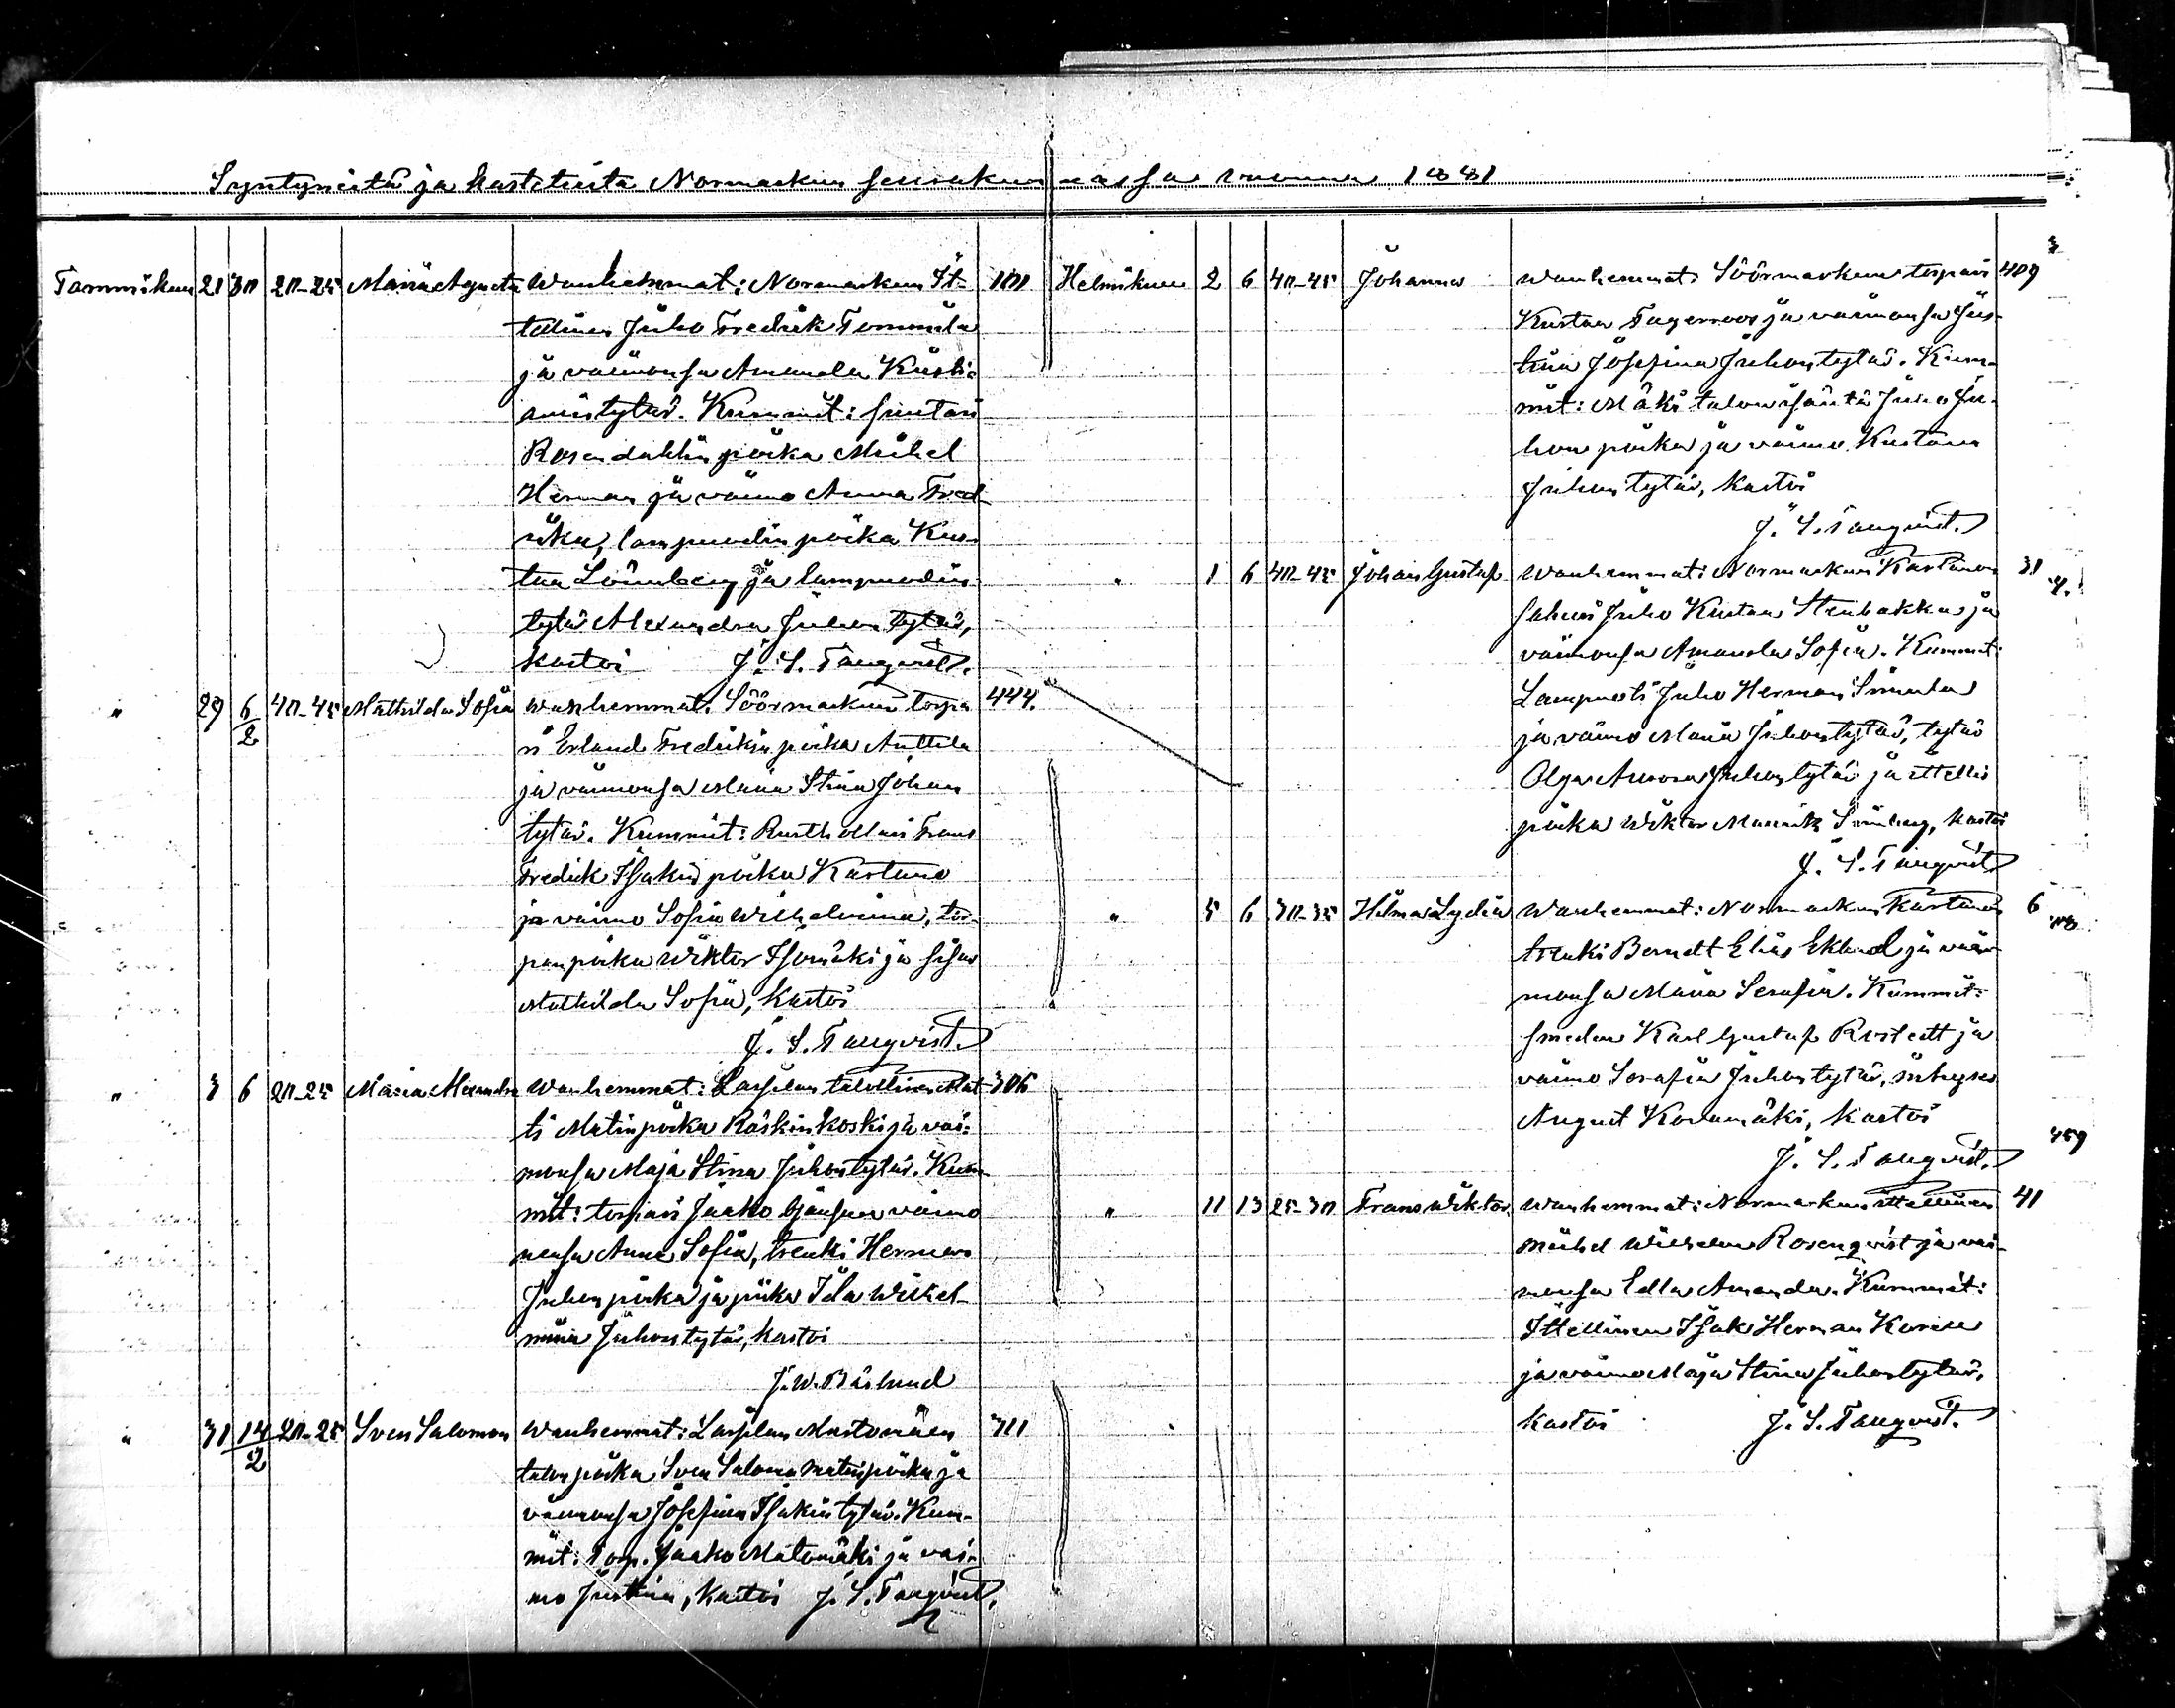 Syntyneitä ja kastetuita Normarkun seurakunnassa vuonna 1881
Tammikuu 21 30 20-25 Maria Agneta Wanhemmat: Normarkun It- 101
tellinen Juho Fredrik Tommila
ja vaimonsa Amanda Kristi-
anintytär. Kummit: suutari
Rosendahlin poika Mikel
Herman ja vaimo Anna Fred-
rika, lampuodin poika Kus-
taa Lönnberg ja lampuodin
tytär Alexandra Juhon tytär,
kastoi J. S. Tanqvist.
" 29 6/2 40-45 Mathilda Sofia wanhemmat: Söörmarkun torpa- 444.
ri Erland Fredrikin poika Anttila
ja vaimonsa Maria Stina Johan
tytär. Kummit: Rusthollari Frans
Fredrik Isakin poika Kartano
ja vaimo Sofia Wilhelmina, tor-
pan poika Wiktor Isomäki ja sisar
Mathilda Sofia, kastoi
J. S. Tanqvist.
" 3 6 20-25 Maria Alexandra Wanhemmat: Lassilan talollinen Mat- 306
ti Matinpoika Räskinkoski ja vai-
monsa Maja Stina Juhontytär. Kum-
mit: torpari Jaako vaimo
nensa Anna Sofia, trenki Herman
Juhonpoika ja piika Ida Wilhel-
mina Juhontytär, kastoi
J. W. Båslund
" 31 14/2 20-25 Sven Salomon Wanhemmat: Lassilan
talon poika Sven Salomo Matinpoika ja
vaimonsa Josefina Isakin tytär. Kum-
mit: Torp. Jaako Mätömäki ja vai-
mo Justina, kastoi J. S. Tanqvist.
Helmikuu 2 6 40-45 Johanna wanhemmat: Söörmarkun torpari 409
Kustaa Fagerroos ja vaimonsa Jus-
tiina Josefina Juhontytär. Kum-
mit: Mäki talon isäntä Juho Ju-
hon poika ja vaimo Kustava
Juhontytär, kastoi
J. S. Tanqvist.
" 1 6 40-45 Johan Gustaf Wanhemmat: Normarkun Kartanon 31
sahuri Juho Kustaa Stenbakka ja
vaimonsa Amanda Sofia. Kummit:
Lampuoti Juho Herman Simula
ja vaimo Maria Juhontytär, tytär
Olga Aurora Juhontytär ja ittellis
poika Wiktor Maurits kastoi
J. S. Tanqvist
" 5 6 30-35 Hilma Lydia Wanhemmat: Normarkun Kartanon 6
trenki Berndt Elias Eklund ja vai-
monsa Maria Serafia. Kummit:
smeden Karl Gustaf Rostedt ja
vaimo Serafia Juhontytär,
August Koramäki, kastoi
J. S. Tanqvist. 459
" 11 13 25-30 Frans Wiktor Wanhemmat: Normarkun ittellinen 41
Mikel Wilhelm Rosenqvist ja vai-
monsa Edla Amanda. Kummit:
Ittellinen Isak Herman
ja vaimo Maja Stina Juhontytär,
kastoi J. S. Tanqvist.